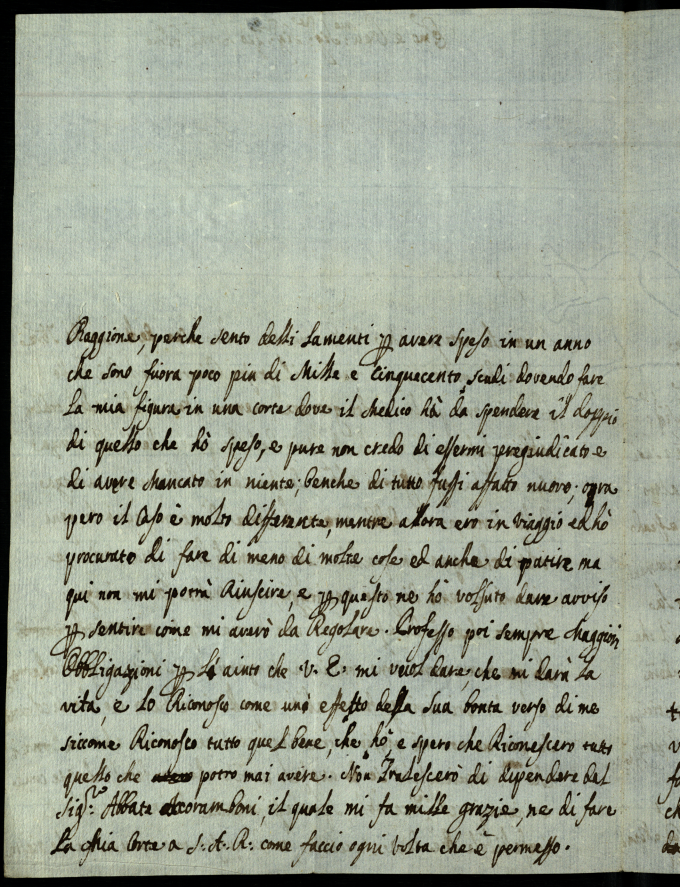 Raggione, perche sento delli Lamenti ꝑ avere speso in un anno
che sono fuora poco piu di Mille e Cinquecento scudi dovendo fare
La mia figura in una corte dove il Medico hà da spendere il doppio
di quello che hò speso, e pure non credo di essermi pregiudicato e
di avere Mancato in niente, benche di tutto fussi affatto nuovo; ora
pero il Caso è molto differente, mentre allora ero in viaggio ed hò
procurato di fare di meno di molte cose ed anche di patire ma
qui non mi potrà Riuscire, e ꝑ questo ne hò volsuto dare avviso
ꝑ sentire come mi averò da Regolare. Professo poi sempre Maggiori
Obbligazioni ꝑ L' aiuto che V. E. mi vuol dare, che mi darà La
vita, e Lo Riconosco come uno effetto della sua bontà verso di me
siccome Riconosco tutto quel bene, che hò, e spero che Riconescero tutto
quello che potro mai avere. Non Tralescerò di dipendere dal
Sig.r Abbate Accoramboni, il quale mi fa mille grazie, ne di fare
La Mia Corte a S. A. R. come faccio ogni volta che è permesso.